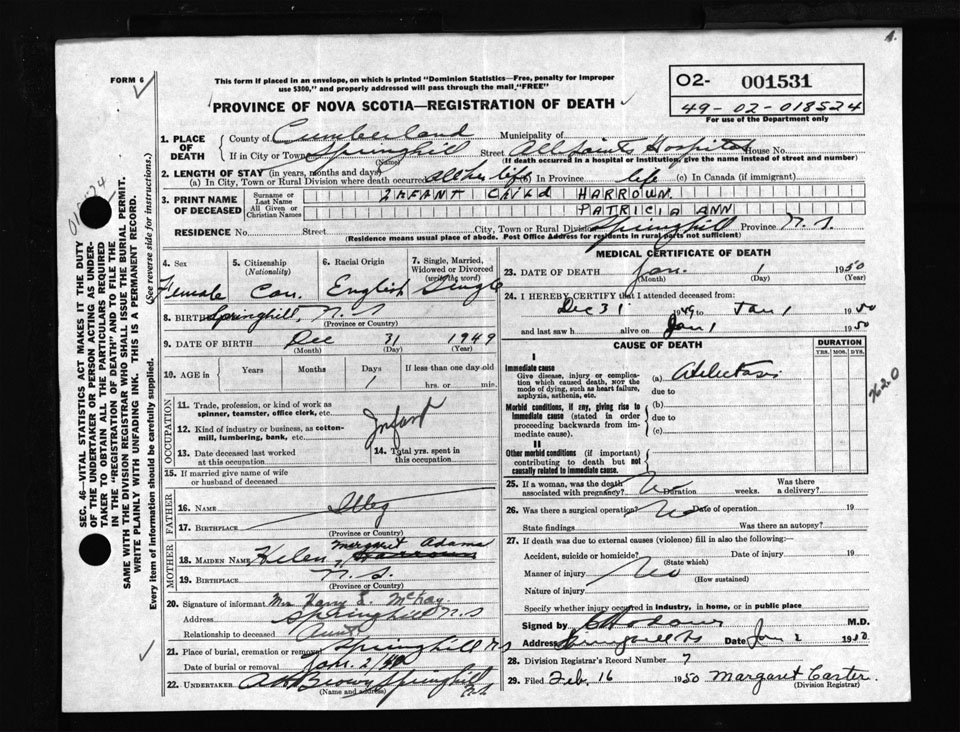 1.
FORM 6
This form if placed in an envelope, on which is printed "Dominion Statistics—Free, penalty for improper
use $300," and properly addressed will pass through the mail "FREE"
PROVINCE OF NOVA SCOTIA—REGISTRATION OF DEATH
O2- 001531
49-02-018524
For use of the Department only
SEC. 46—VITAL STATISTICS ACT MAKES IT THE DUTY
OF THE UNDERTAKER OR PERSON ACTING AS UNDER-
TAKER TO OBTAIN ALL THE PARTICULARS REQUIRED
IN THE "REGISTRATION OF DEATH" AND TO FILE THE
SAME WITH THE DIVISION REGISTRAR WHO SHALL ISSUE THE BURIAL PERMIT.
WRITE PLAINLY WITH UNFADING INK. THIS IS A PERMANENT RECORD.
Every item of information should be carefully supplied. (See reverse side for instructions.)
1. PLACE OF DEATH
County of Cumberland Municipality of
If in City or Town Springhill Street All Saints Hospital House No.
(Name) (If death occurred in a hospital or institution, give the name instead of street and number)
2. LENGTH OF STAY (in years, months and days)
(a) In City, Town or Rural Division where death occurred all her life (b) In Province life (c) In Canada (if immigrant)
3. PRINT NAME OF DECEASED
Surname or Last Name INFANT CHILD HARROWN
All Given or Christian Names PATRICIA ANN
RESIDENCE No. Street City, Town or Rural Division Springhill Province N. S.
(Residence means usual place of abode. Post Office Address for residents in rural parts not sufficient)
4. Sex 5. Citizenship (Nationality) 6. Racial Origin 7. Single, Married, Widowed or Divorced (write the word)
Female Can. English Single
8. BIRTHPLACE Springhill, N. S
(Province or Country)
9. DATE OF BIRTH Dec 31 1949
(Month) (Day) (Year)
10. AGE in Years Months Days If less than one day old
1 hrs. or min.
OCCUPATION
11. Trade, profession, or kind of work as
spinner, teamster, office clerk, etc.
Infant
12. Kind of industry or business, as cotton-
mill, lumbering, bank, etc.
13. Date deceased last worked
at this occupation
14. Total yrs. spent in
this occupation
15. If married give name of wife
or husband of deceased
FATHER
16. NAME Illeg
17. BIRTHPLACE
(Province or Country)
MOTHER
Margaret Adams
18. MAIDEN NAME Helen
19. BIRTHPLACE N. S.
(Province or Country)
20. Signature of informant Mrs Harry S. McKay
Address Springhill N. S
Relationship to deceased Aunt
21. Place of burial, cremation or removal Springhill N S
Date of burial or removal Jan. 2/49
22. UNDERTAKER A H Brown Springhill N.S
(Name and address)
MEDICAL CERTIFICATE OF DEATH
23. DATE OF DEATH Jan. 1 1950
24. I HEREBY CERTIFY that I attended deceased from:
Dec 31 1949 to Jan 1 1950
and last saw h alive on Jan 1 1950
CAUSE OF DEATH
DURATION
YRS. MOS. DYS.
I
Immediate cause
Give disease, injury or compli-
cation which caused death, NOT the
mode of dying, such as heart failure,
asphyxia, asthenia, etc.
(a) Atelectasis
due to
762.0
Morbid conditions, if any, giving rise to
immediate cause (stated in order
proceeding backwards from im-
mediate cause).
(b)
due to
(c)
II
Other morbid conditions (if important)
contributing to death but not
causally related to immediate cause.
25. If a woman, was the death
associated with pregnancy? No Duration weeks. Was there
a delivery?
26. Was there a surgical operation? No Date of operation 19
State findings Was there an autopsy?
27. If death was due to external causes (violence) fill in also the following:—
Accident, suicide or homicide? Date of injury 19
(State which)
Manner of injury No
(How sustained)
Nature of injury
Specify whether injury occurred in industry, in home, or in public place
Signed by M.D.
Address Springhill NS Date Jan 2 1950
28. Division Registrar's Record Number 7
29. Filed Feb. 16 1950 Margaret Carter.
(Division Registrar)